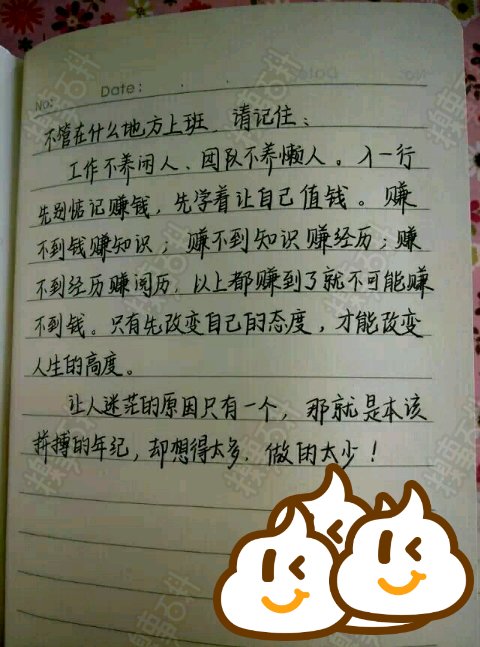 No:
Date:
不管在什么地方上班，请记住：
工作不养闲人、团队不养懒人。入一行
先别惦记赚钱，先学着让自己值钱。赚
不到钱赚知识；赚不到知识赚经历；赚
不到经历赚阅历，以上都赚到了就不可能赚
不到钱。只有先改变自己的态度，才能改变
人生的高度。
让人迷茫的原因只有一个，那就是本该
拼搏的年纪，却想得太多，做的太少！